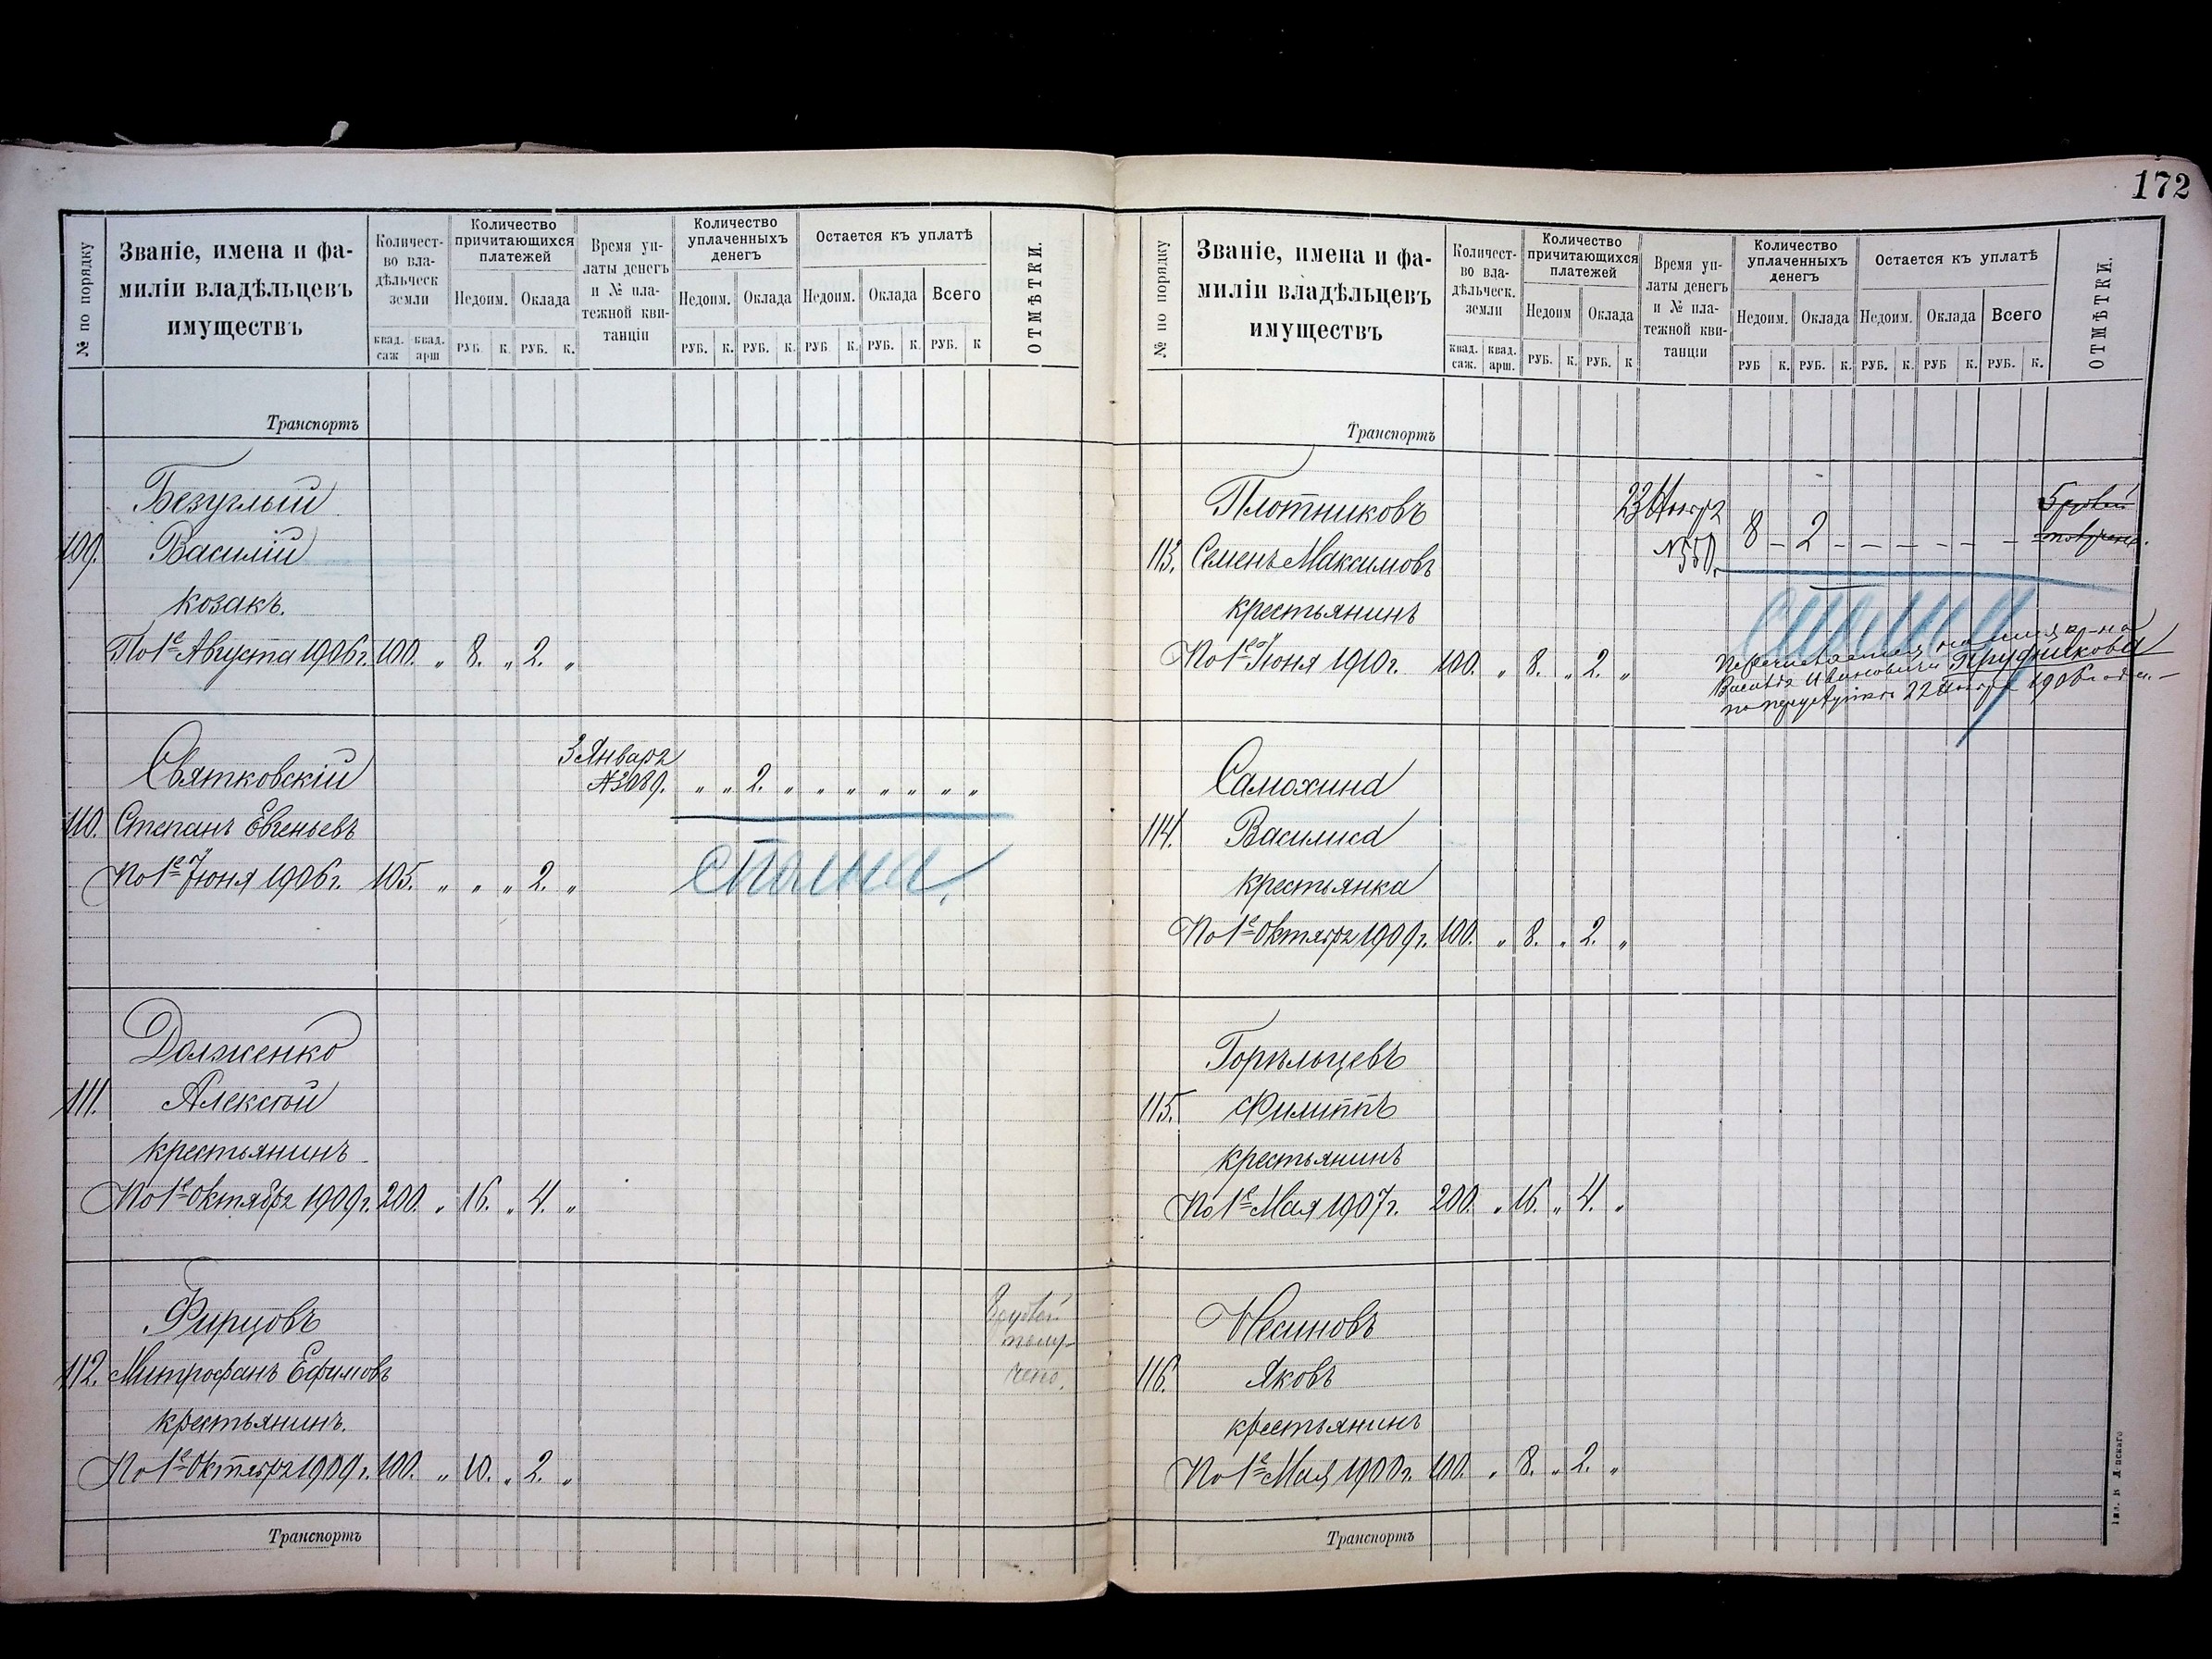 172
№ по порядку
Званіе, имена и фа-
миліи владѣльцевъ
имуществъ
Количест-
во вла-
дѣльческ
земли
квад. саж
квад. арш
Количество
причитающихся
платежей
Недоим. Оклада
РУБ. К. РУБ. К.
Время уп-
латы денегъ
и № пла-
тежной кви-
танціи
Количество
уплаченныхъ
денегъ
Недоим. Оклада
РУБ. К. РУБ. К.
Остается къ уплатѣ
Недоим. Оклада Всего
РУБ К. РУБ. К. РУБ. К
ОТМѢТКИ.
Транспортъ
Безуглый
109. Василій
козакъ.
По 1е Августа 1906 г. 100. „ 8. „ 2. „
3 Января
Святковскій
№ 3089. „ „ 2. „ „ „ „ „ „ „
110. Степанъ Евгеньевъ
По 1е Іюня 1906 г. 105. „ „ „ 2. „
сполна.
Долженко
111. Алексѣй
крестьянинъ
По 1е Октября 1909 г. 200. „ 16. „ 4. „
Фирцовъ
112. Митрофанъ Ефимовъ
крестьянинъ.
По 1е Октября 1909 г. 100. „ 10. „ 2. „
Транспортъ
№ по порядку
Званіе, имена и фа-
миліи владѣльцевъ
имуществъ
Количест-
во вла-
дѣльческ.
земли
квад. саж.
квад. арш.
Количество
причитающихся
платежей
Недоим Оклада
РУБ. К. РУБ. К
Время уп-
латы денегъ
и № пла-
тежной кви-
танціи
Количество
уплаченныхъ
денегъ
Недоим. Оклада
РУБ К. РУБ. К.
Остается къ уплатѣ
Недоим. Оклада Всего
РУБ. К. РУБ К. РУБ. К.
ОТМѢТКИ.
Транспортъ
Плотниковъ
23 Ноября
8 – 2 – – – – – –
113. Семенъ Максимовъ
крестьянинъ
По 1е Іюня 1910 г. 100. „ 8. „ 2. „
сполна
Перечисляется на имя кр-на
Василія Ивановича Трудникова
22 Ноября 1906
Самохина
114. Василиса
крестьянка
По 1е Октября 1909 г. 100. „ 8. „ 2. „
Горѣльцевъ
115. Филиппъ
крестьянинъ
По 1е Мая 1907 г. 200. „ 16. „ 4. „
Несиновъ
116. Яковъ
крестьянинъ
По 1е Мая 1908 г. 100. „ 8. „ 2. „
Транспортъ